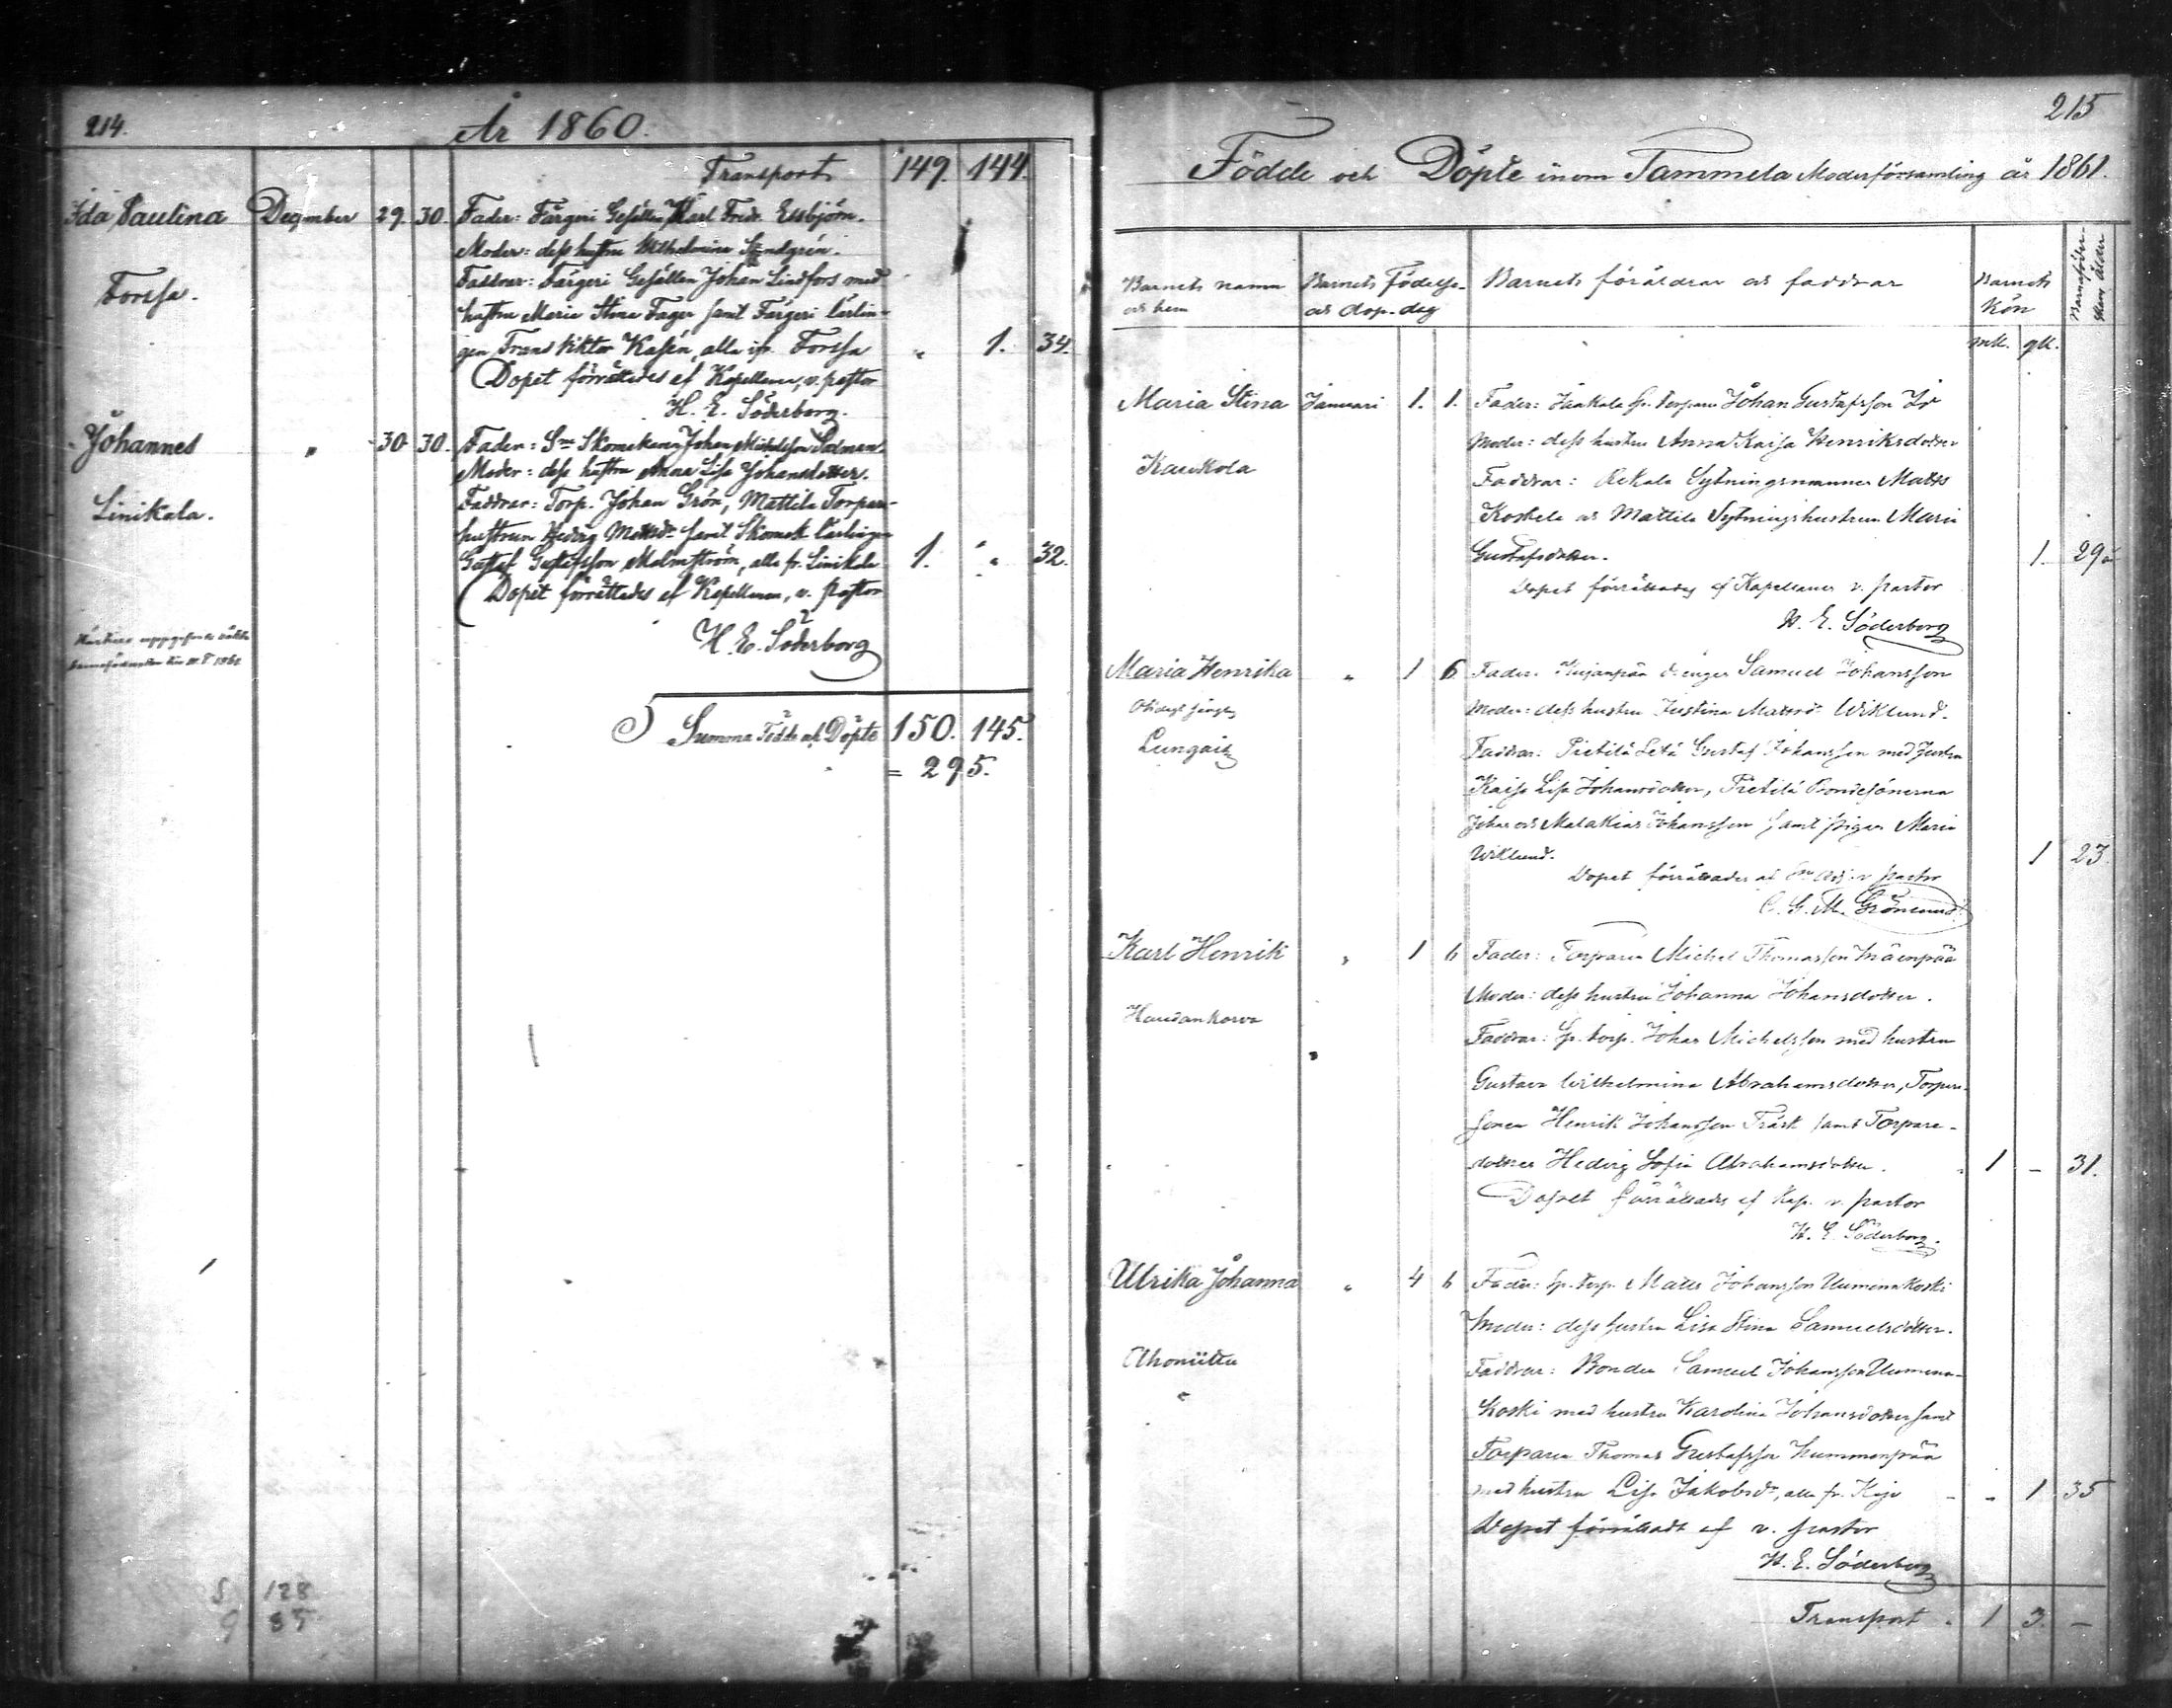 214.
År 1860.
Transport 149. 144.
Ida Paulina December 29. 30. Fader: Färgeri Gesällen Karl Fredr. Essbjörn.
Moder: dess hustru Wilhelmina Sundgrén.
Forssa.
Faddrar: Färgeri Gesällen Johan Lindfors med
hustru Maria Stina Fager samt Färgeri lärlin-
gen Frans Viktor Kasén, alla ifr. Forssa „ 1. 34.
Dopet förrättades af Kapellanen, v. pastor
H. E. Söderborg.
Johannes „ 30 30. Fader: Skomakaren Johan Michelsson
Moder: dess hustru Anna Lisa Johansdotter.
Linikala.
Faddrar: Torp. Johan Grön, Mattila Torpare-
hustrun Hedvig Mattsdr samt Skomak. lärlingen
Gustaf Gustafsson Malmström, alla fr. Linikala 1. „ 32.
Dopet förrättades af Kapellanen, v. Pastor
H. E. Söderborg
Summa Födde och Döpte 150. 145.
= 295.
128
9 85
215
Födde och Döpte inom Tammela Moderförsamling år 1861.
Barnets namn och hem
Barnets födelse- och dop-dag
Barnets föräldrar och faddrar
Barnets kön
mk. qk.
Barnaföder-
skans ålder
Maria Stina Januari 1. 1. Fader: Jaakola Sp. torpare Johan Gustafsson
Moder: dess hustru Anna Kaisa Henriksdotter
Kaukola
Faddrar: Sytningsmannen Matts
Koskela och Mattila Sytningshustrun Maria
Gustafsdotter. 1. 29
Dopet förrättades af Kapellanen v. pastor
H. E. Söderborg
Maria Henrika „ 1 6 Fader: drengen Samuel Johansson
Moder: dess hustru Justina Mattsdr Wiklund.
Faddrar: Pietilä Gustaf Johansson med hustru
Kaisa Lisa Johansdotter, Pietilä Bondesönerna
Johan och Malakias Johansson samt pigan Maria
Wiklund. 1 23
Dopet förrättades af v. pastor
C. G. M. Grönlund
Karl Henrik „ 1 6 Fader: Torparen Michel Thomasson Mäenpää
Moder: dess hustru Johanna Johansdotter.
Haudankorva
Faddrar: Sp. torp. Johan Michelsson med hustru
Gustava Wilhelmina Abrahamsdotter, Torpare-
sonen Henrik Johansson Träsk samt Torpare-
dottren Hedvig Sofia Abrahamsdotter. 1 – 31.
Dopet förrättades af Kap. v. pastor
H. E. Söderborg.
Ulrika Johanna „ 4 6 Fader: Sp. torp. Matts Johansson
Moder: dess hustru Lisa Stina Samuelsdotter.
Ahoniittu
Faddrar: Bonden Samuel Johansson
koski med hustru Karolina Johansdotter samt
Torparen Thomas Gustafsson
med hustru Lisa Jakobsdr, alla fr. „ 1 35
Dopet förrättadt af v. pastor
H. E. Söderborg
Transport 1 3. –